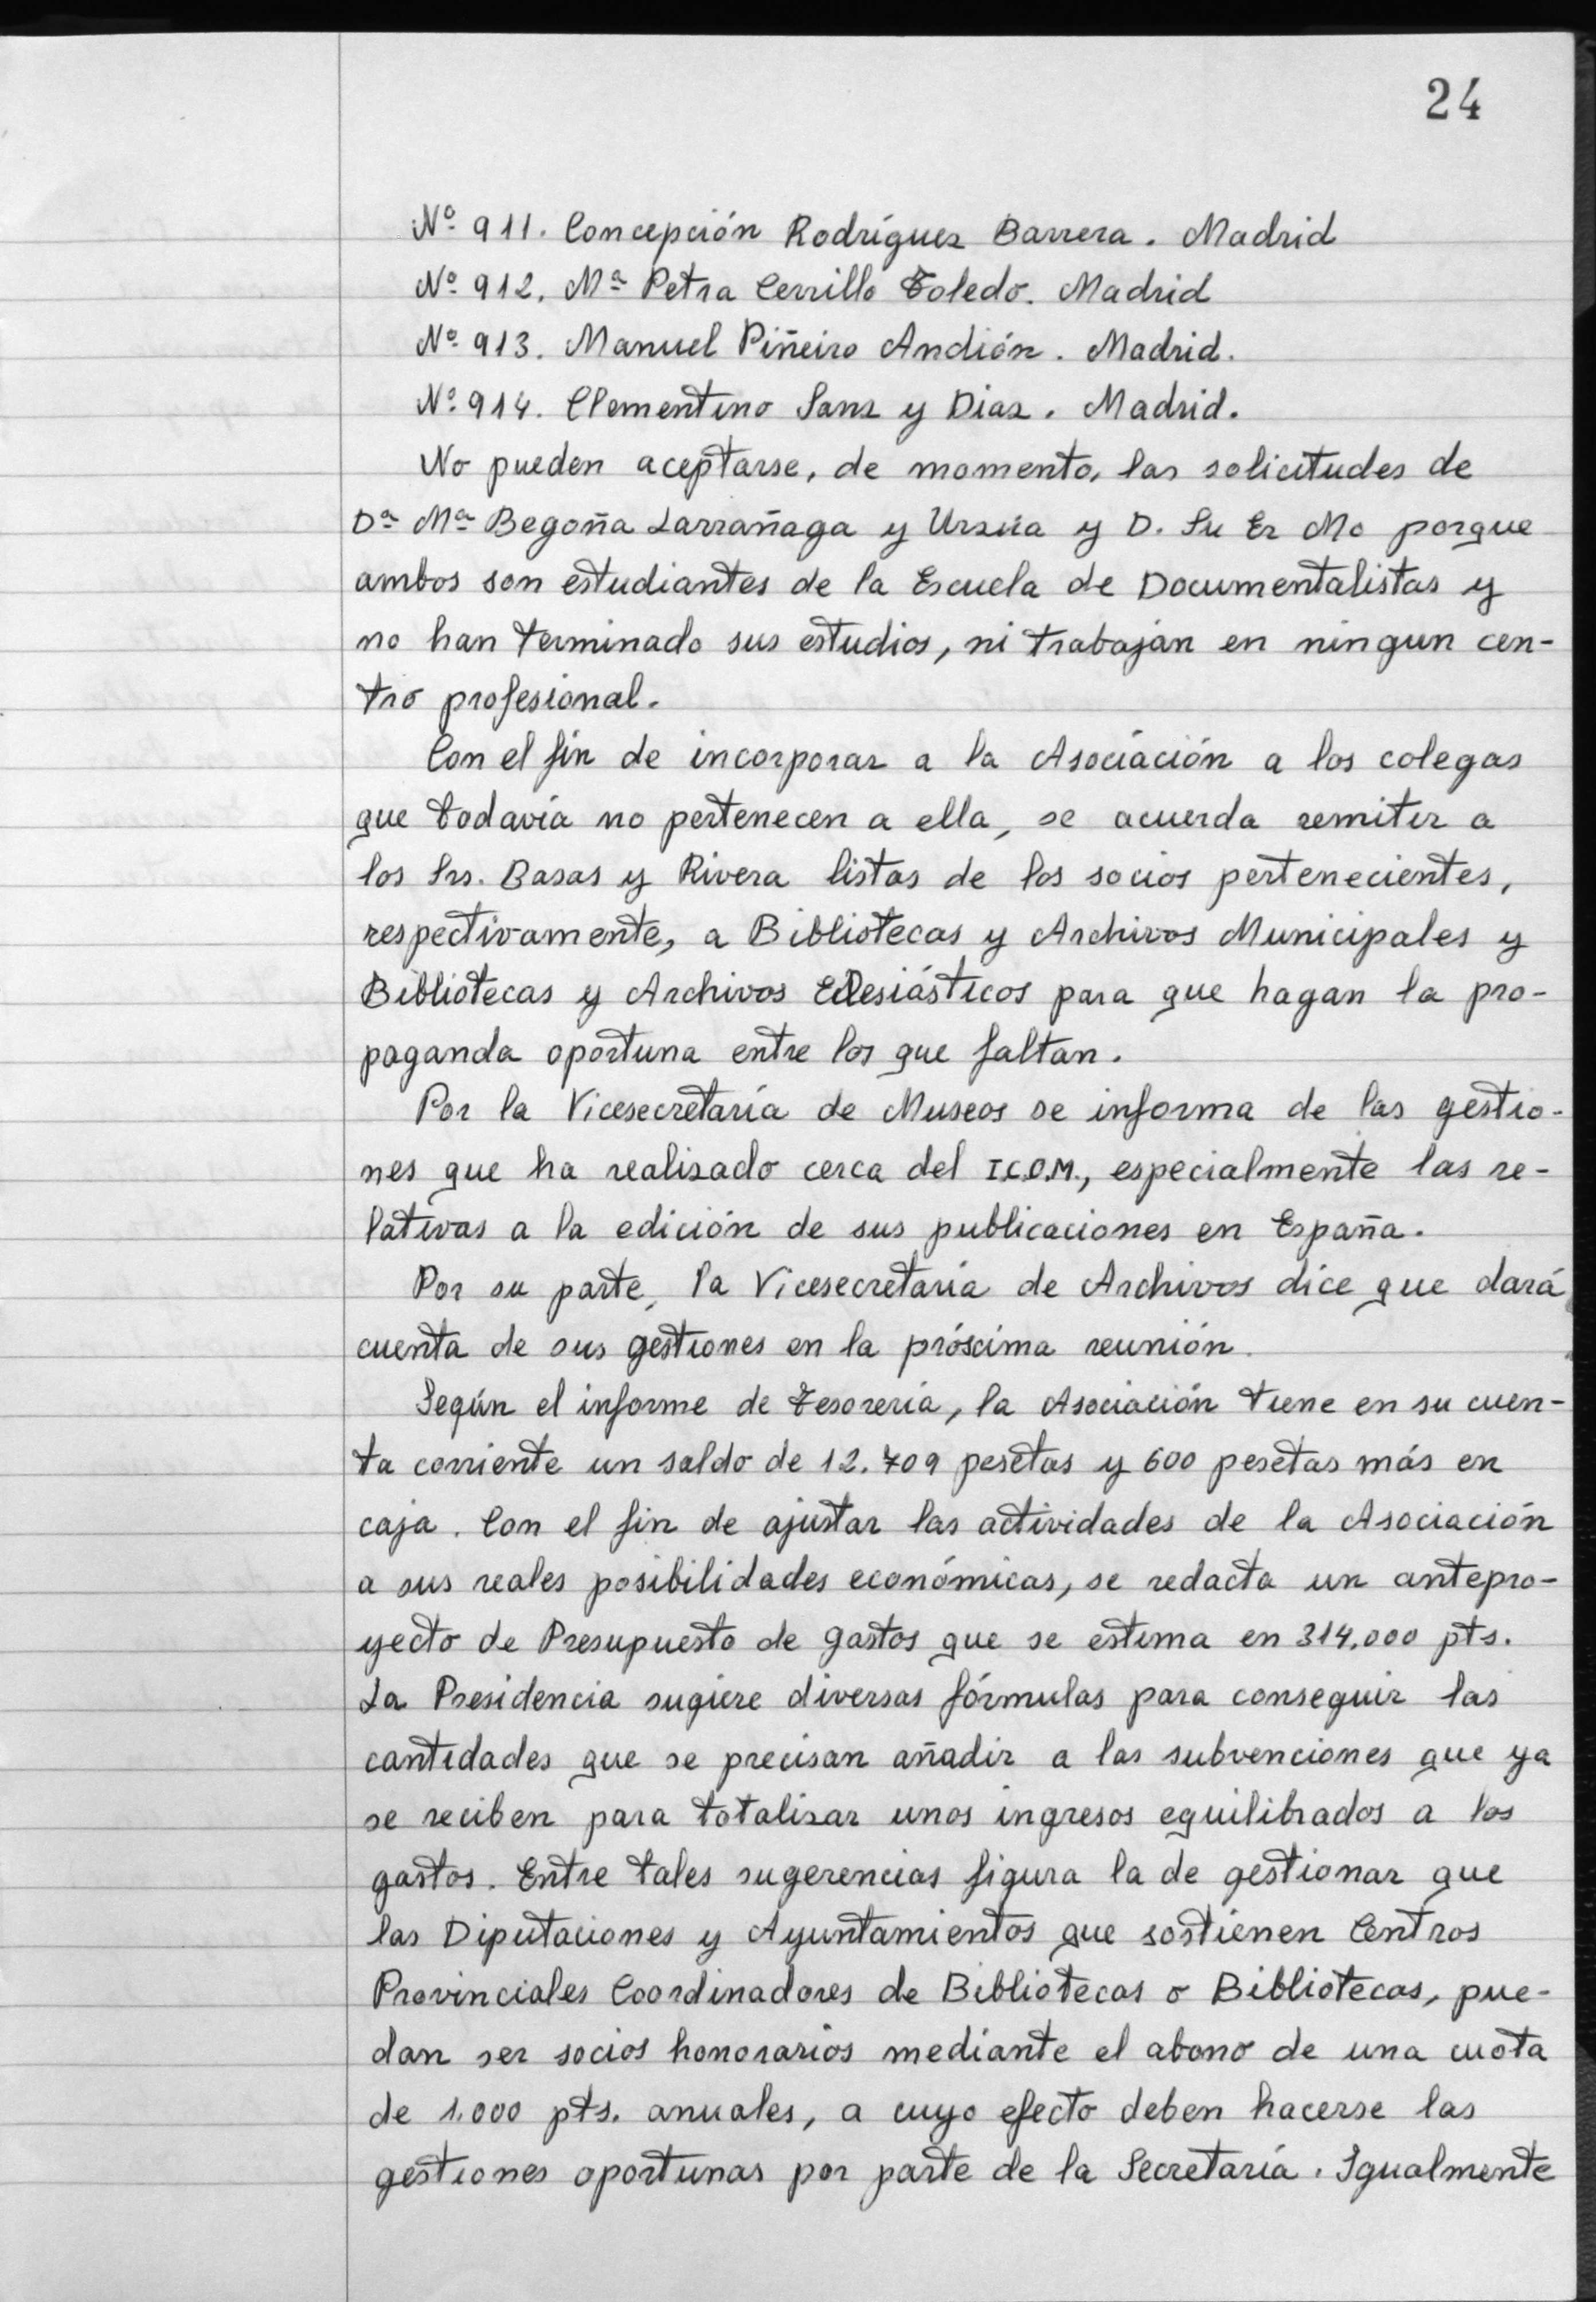 24
Nº 911. Concepción Rodríguez Barrera. Madrid
Nº 912. Mª Petra Cerrillo Toledo. Madrid
Nº 913. Manuel Piñeiro Andión. Madrid.
Nº 914. Clementino Sanz y Diaz. Madrid.
No pueden aceptarse, de momento, las solicitudes de
Dª Mª Begoña Larrañaga y Urzúa y D. Su Er Mo porque
ambos son estudiantes de la Escuela de Documentalistas y
no han terminado sus estudios, ni trabajan en ningun cen-
tro profesional.
Con el fin de incorporar a la Asociación a los colegas
que todavía no pertenecen a ella, se acuerda remitir a
los Srs. Basas y Rivera listas de los socios pertenecientes,
respectivamente, a Bibliotecas y Archivos Municipales y
Bibliotecas y Archivos Eclesiásticos para que hagan la pro-
paganda oportuna entre los que faltan.
Por la Vicesecretaría de Museos se informa de las gestio-
nes que ha realizado cerca del I.C.O.M., especialmente las re-
lativas a la edición de sus publicaciones en España.
Por su parte, la Vicesecretaría de Archivos dice que dará
cuenta de sus gestiones en la próxima reunión.
Según el informe de Tesorería, la Asociación tiene en su cuen-
ta corriente un saldo de 12.709 pesetas y 600 pesetas más en
caja. Con el fin de ajustar las actividades de la Asociación
a sus reales posibilidades económicas, se redacta un antepro-
yecto de Presupuesto de gastos que se estima en 314.000 pts.
La Presidencia sugiere diversas fórmulas para conseguir las
cantidades que se precisan añadir a las subvenciones que ya
se reciben para totalizar unos ingresos equilibrados a los
gastos. Entre tales sugerencias figura la de gestionar que
las Diputaciones y Ayuntamientos que sostienen Centros
Provinciales Coordinadores de Bibliotecas o Bibliotecas, pue-
dan ser socios honorarios mediante el abono de una cuota
de 1.000 pts. anuales, a cuyo efecto deben hacerse las
gestiones oportunas por parte de la Secretaría. Igualmente